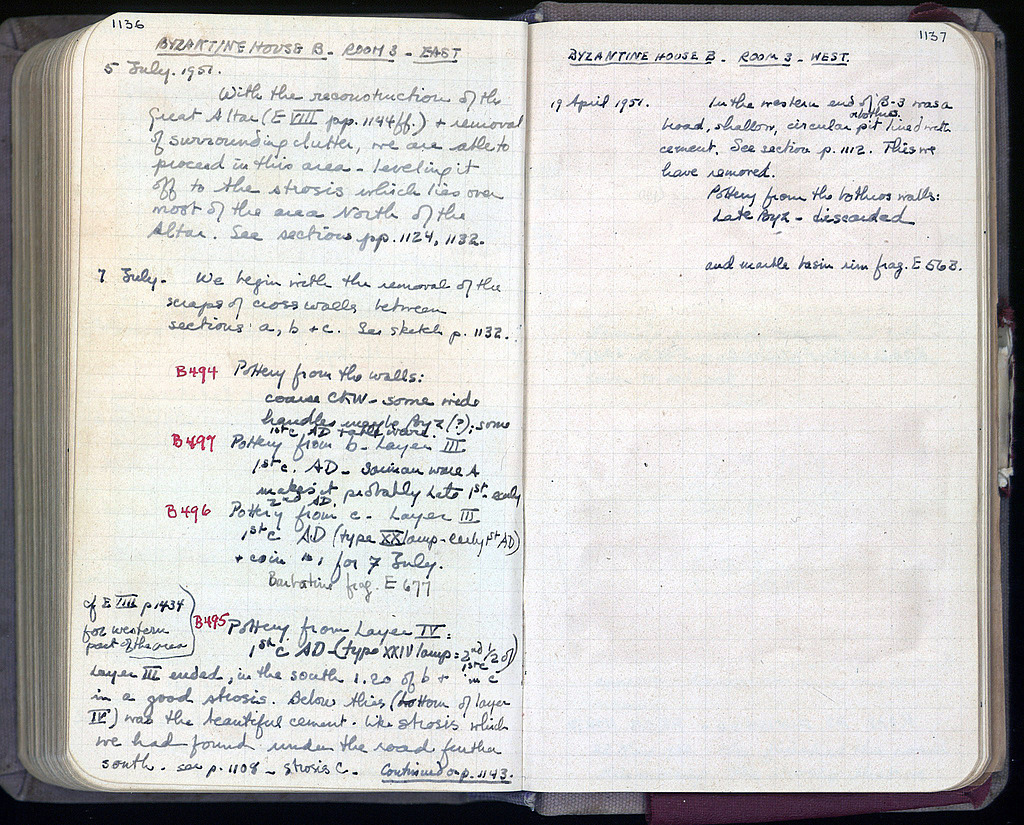 1136
BYZANTINE HOUSE B - ROOM 3 - EAST
5 July. 1951.
With the reconstruction of the
Great Altar (E VIII pp. 1144ff.) + removal
of surrounding clutter, we are able to
proceed in this area - leveling it
off to the strosis which lies over
most of the area North of the
Altar. See sections pp. 1124, 1132.
7 July. We begin with the removal of the
scraps of cross walls between
sections a, b + c. See sketch p. 1132.
B494 Pottery from the walls:
coarse CRW - some wide
handles maybe Byz (?); some
1st c AD table ware.
B497 Pottery from b - Layer III
1st c. AD - Samian ware A
makes it probably late 1st - early
2nd AD.
B496 Pottery from c. Layer III
1st c AD (type XX lamp - early 1st AD)
+ coin no. 1 for 7 July.
Barbotine frag. E 677
cf E VIII p 1434
for western
part of the area
B495 Pottery from Layer IV:
1st c AD - (type XXIV lamp = 2nd 1/2 of
1st c
Layer III ended, in the south 1.20 of b + in c
in a good strosis. Below this (bottom of layer
IV) was the beautiful cement-like strosis which
we had found under the road further
south. see p. 1108 - strosis C. Continued on p. 1143.
1137
BYZANTINE HOUSE B - ROOM 3 - WEST.
19 April 1951. In the western end of B-3 was a
bothros.
road, shallow, circular pit lined with
cement. See section p. 1112. This we
have removed.
Pottery from the bothros walls:
Late Byz - discarded
and marble basin rim frag. E 563.